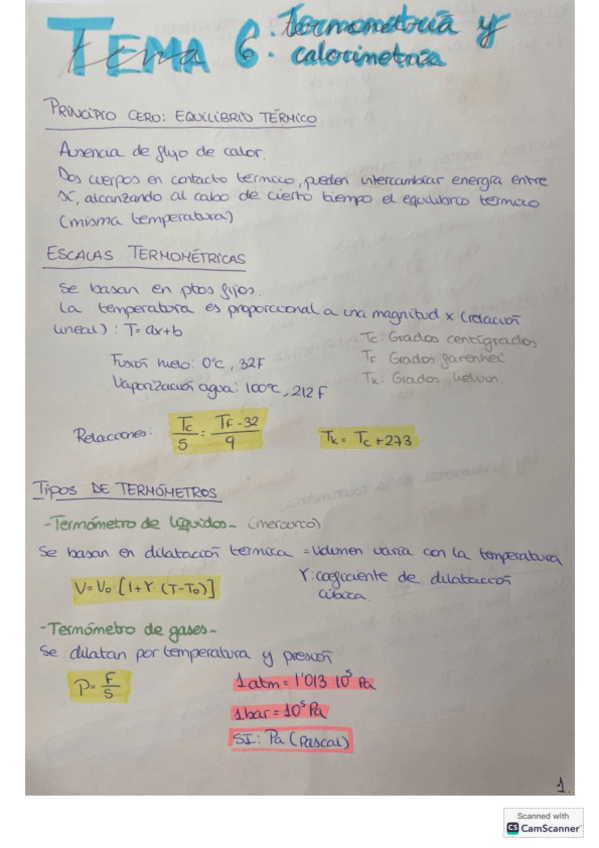 TEMA 6: termometría y
calorimetría
PRINCIPIO CERO: EQUILIBRIO TÉRMICO
Ausencia de flujo de calor.
Dos cuerpos en contacto térmico, pueden intercambiar energía entre
sí, alcanzando al cabo de cierto tiempo el equilibrio térmico
(misma temperatura)
ESCALAS TERMOMÉTRICAS
Se basan en ptos fijos.
La temperatura es proporcional a una magnitud x (relación
lineal): T= ax+b
Tc: Grados centígrados
Fusión hielo: 0°C, 32F
TF Grados farenhei
Vaporización agua: 100°C, 212F
Tk: Grados kelvin.
Relaciones: Tc/5 = TF-32/9
Tk = Tc + 273
TIPOS DE TERMÓMETROS
-Termómetro de líquidos- (mercurio)
Se basan en dilatación térmica = volumen varia con la temperatura
V= Vo·[1+γ·(T-To)]
γ: coeficiente de dilatación
cúbica
-Termómetro de gases-
Se dilatan por temperatura y presión
P= F/S
1atm = 1'013 10⁵ Pa
1bar = 10⁵ Pa
SI: Pa (Pascal)
1.
Scanned with
CS CamScanner